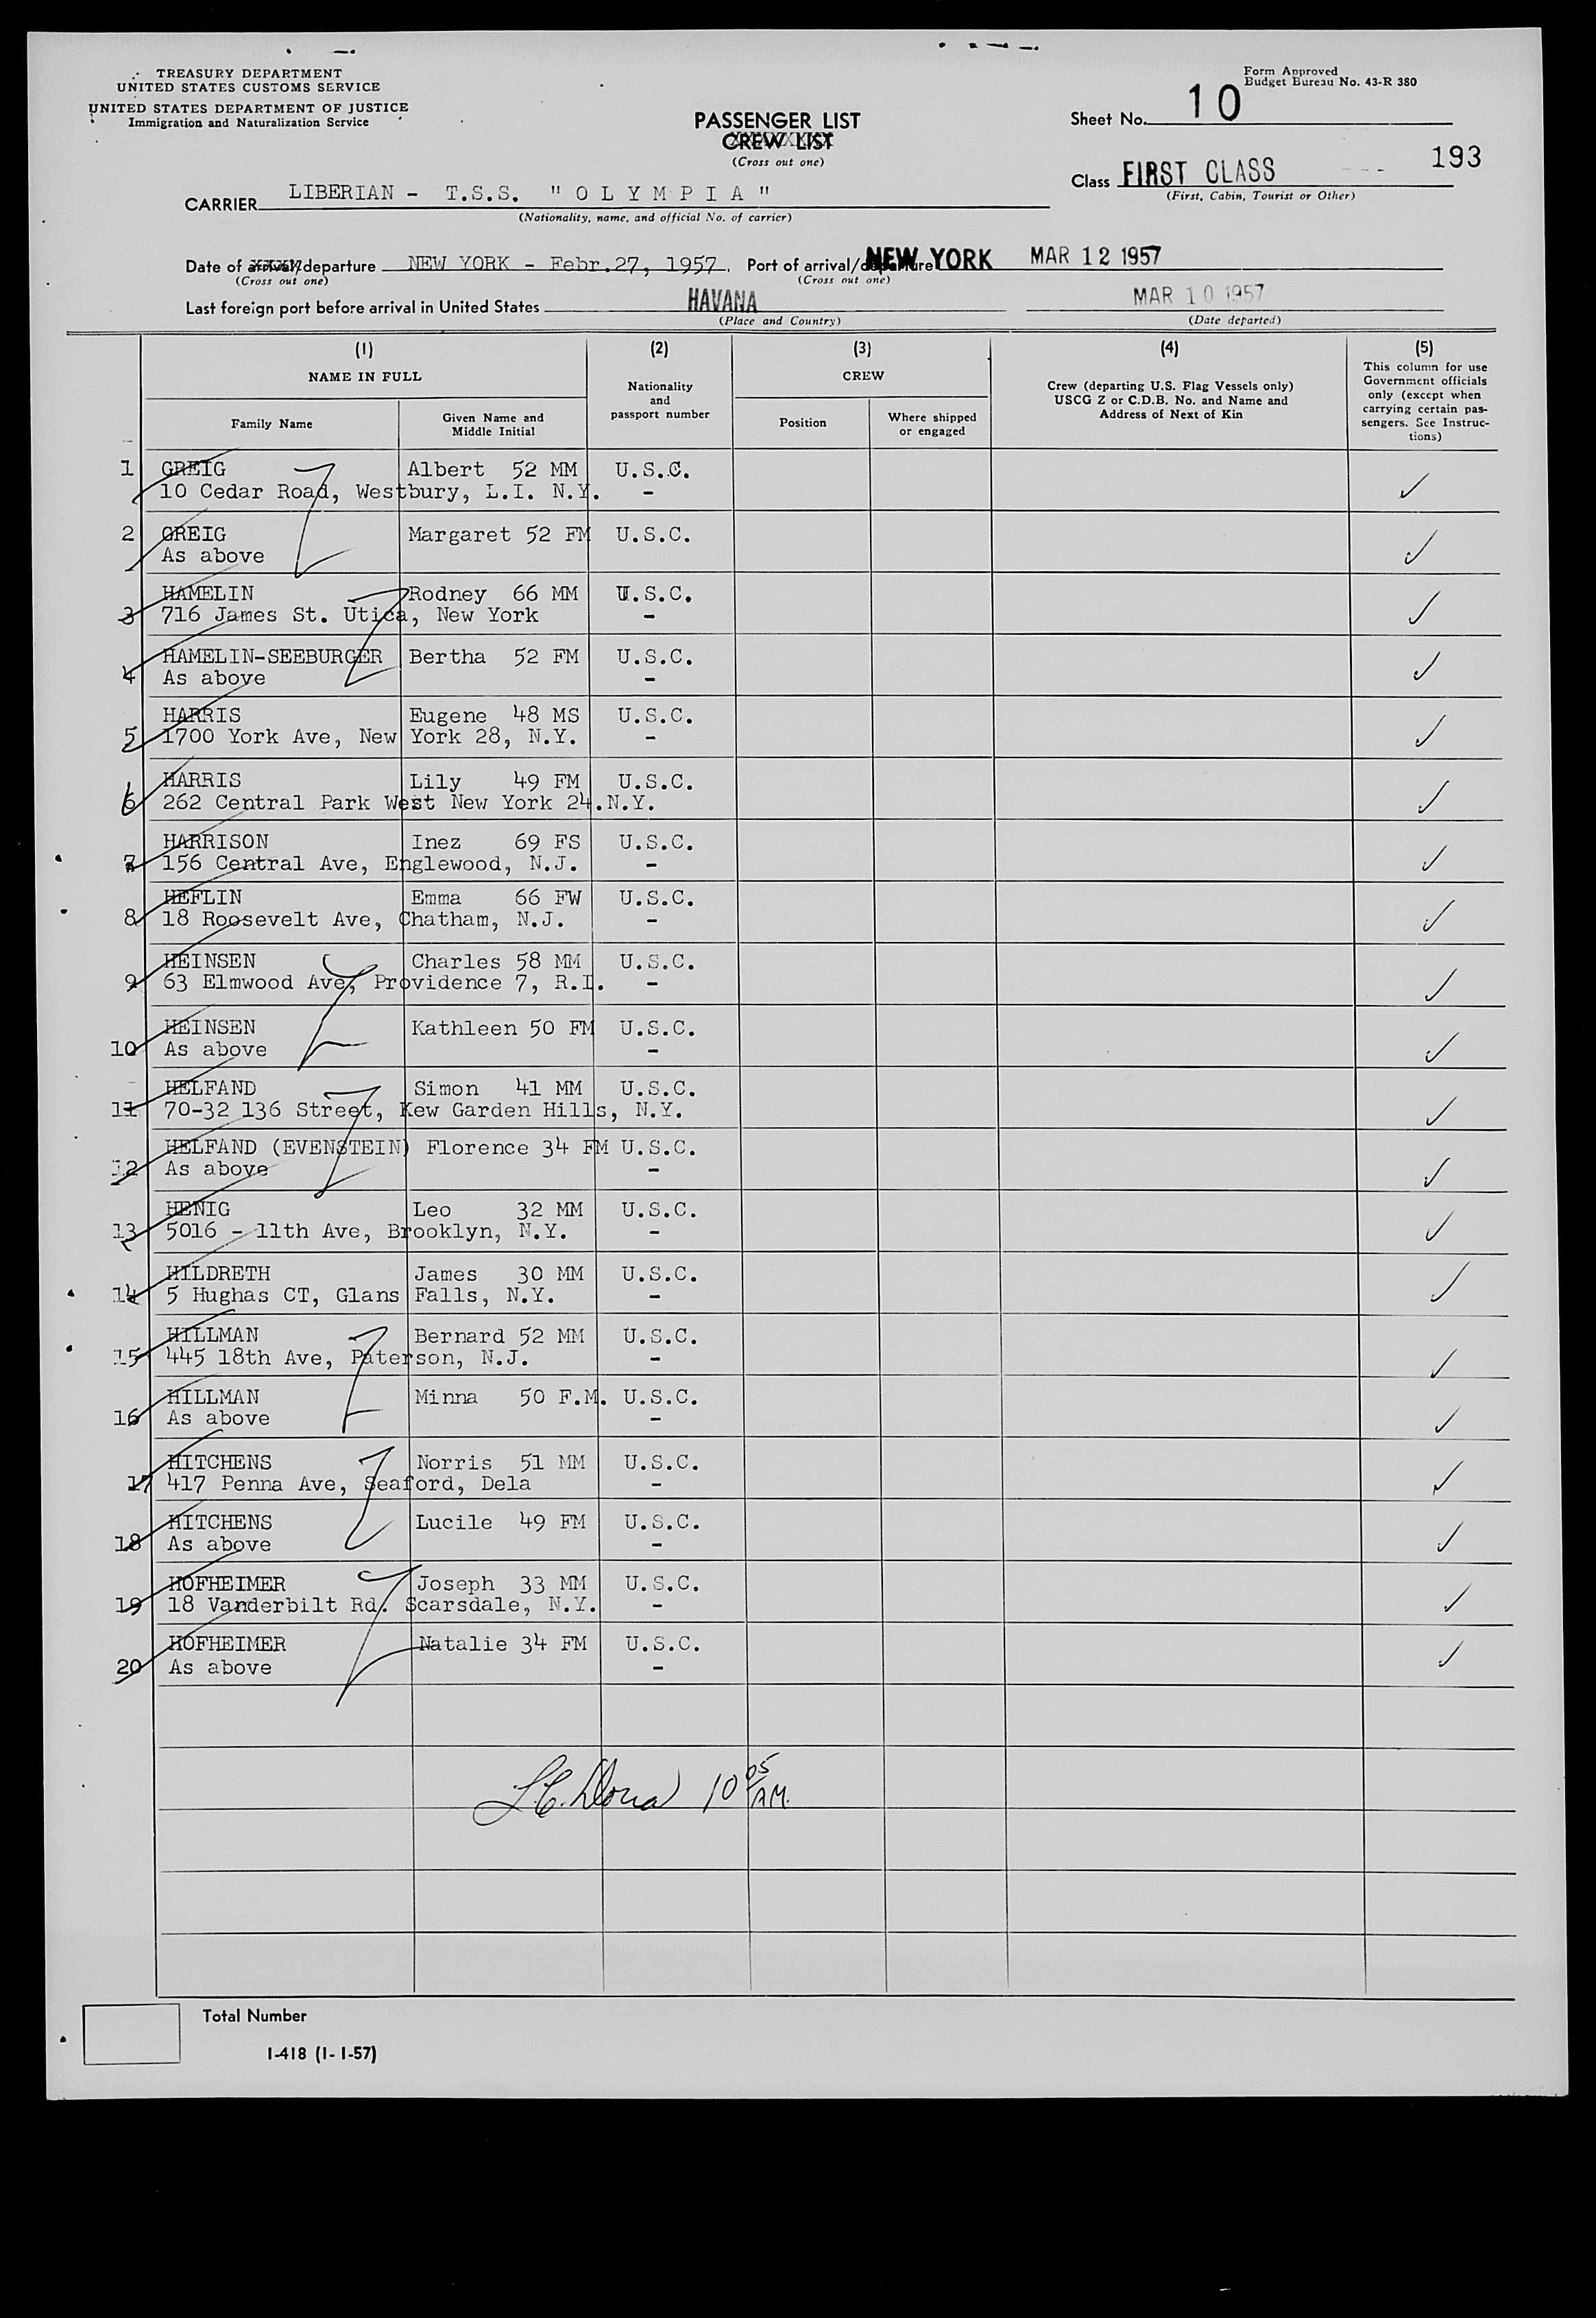 TREASURY DEPARTMENT
UNITED STATES CUSTOMS SERVICE
UNITED STATES DEPARTMENT OF JUSTICE
Immigration and Naturalization Service
Form Approved
Budget Bureau No. 43-R 380
PASSENGER LIST
CREW LIST
(Cross out one)
Sheet No. 10
193
Class FIRST CLASS
(First, Cabin, Tourist or Other)
CARRIER LIBERIAN - T.S.S. "OLYMPIA"
(Nationality, name, and official No. of carrier)
Date of arrival/departure NEW YORK - Febr.27, 1957. Port of arrival/departure NEW YORK MAR 12 1957
(Cross out one) (Cross out one)
Last foreign port before arrival in United States HAVANA MAR 10 1957
(Place and Country) (Date departed)
(1) (2) (3) (4) (5)
NAME IN FULL
Family Name
Given Name and
Middle Initial
Nationality
and
passport number
CREW
Position
Where shipped
or engaged
Crew (departing U.S. Flag Vessels only)
USCG Z or C.D.B. No. and Name and
Address of Next of Kin
This column for use
Government officials
only (except when
carrying certain pas-
sengers. See Instruc-
tions)
1 GREIG Albert 52 MM U.S.C. ✓
10 Cedar Road, Westbury, L.I. N.Y. -
2 GREIG Margaret 52 FM U.S.C. ✓
As above
3 HAMELIN Rodney 66 MM U.S.C. ✓
716 James St. Utica, New York -
4 HAMELIN-SEEBURGER Bertha 52 FM U.S.C. ✓
As above -
5 HARRIS Eugene 48 MS U.S.C. ✓
1700 York Ave, New York 28, N.Y. -
6 HARRIS Lily 49 FM U.S.C. ✓
262 Central Park West New York 24.N.Y.
7 HARRISON Inez 69 FS U.S.C. ✓
156 Central Ave, Englewood, N.J. -
8 HEFLIN Emma 66 FW U.S.C. ✓
18 Roosevelt Ave, Chatham, N.J. -
9 HEINSEN Charles 58 MM U.S.C. ✓
63 Elmwood Ave, Providence 7, R.I. -
10 HEINSEN Kathleen 50 FM U.S.C. ✓
As above -
11 HELFAND Simon 41 MM U.S.C. ✓
70-32 136 Street, Kew Garden Hills, N.Y.
12 HELFAND (EVENSTEIN) Florence 34 FM U.S.C. ✓
As above -
13 HENIG Leo 32 MM U.S.C. ✓
5016 - 11th Ave, Brooklyn, N.Y. -
14 HILDRETH James 30 MM U.S.C. ✓
5 Hughas CT, Glans Falls, N.Y. -
15 HILLMAN Bernard 52 MM U.S.C. ✓
445 18th Ave, Paterson, N.J. -
16 HILLMAN Minna 50 F.M. U.S.C. ✓
As above -
17 HITCHENS Norris 51 MM U.S.C. ✓
417 Penna Ave, Seaford, Dela -
18 HITCHENS Lucile 49 FM U.S.C. ✓
As above -
19 HOFHEIMER Joseph 33 MM U.S.C. ✓
18 Vanderbilt Rd. Scarsdale, N.Y. -
20 HOFHEIMER Natalie 34 FM U.S.C. ✓
As above -
10 05 AM.
Total Number
I-418 (1-1-57)